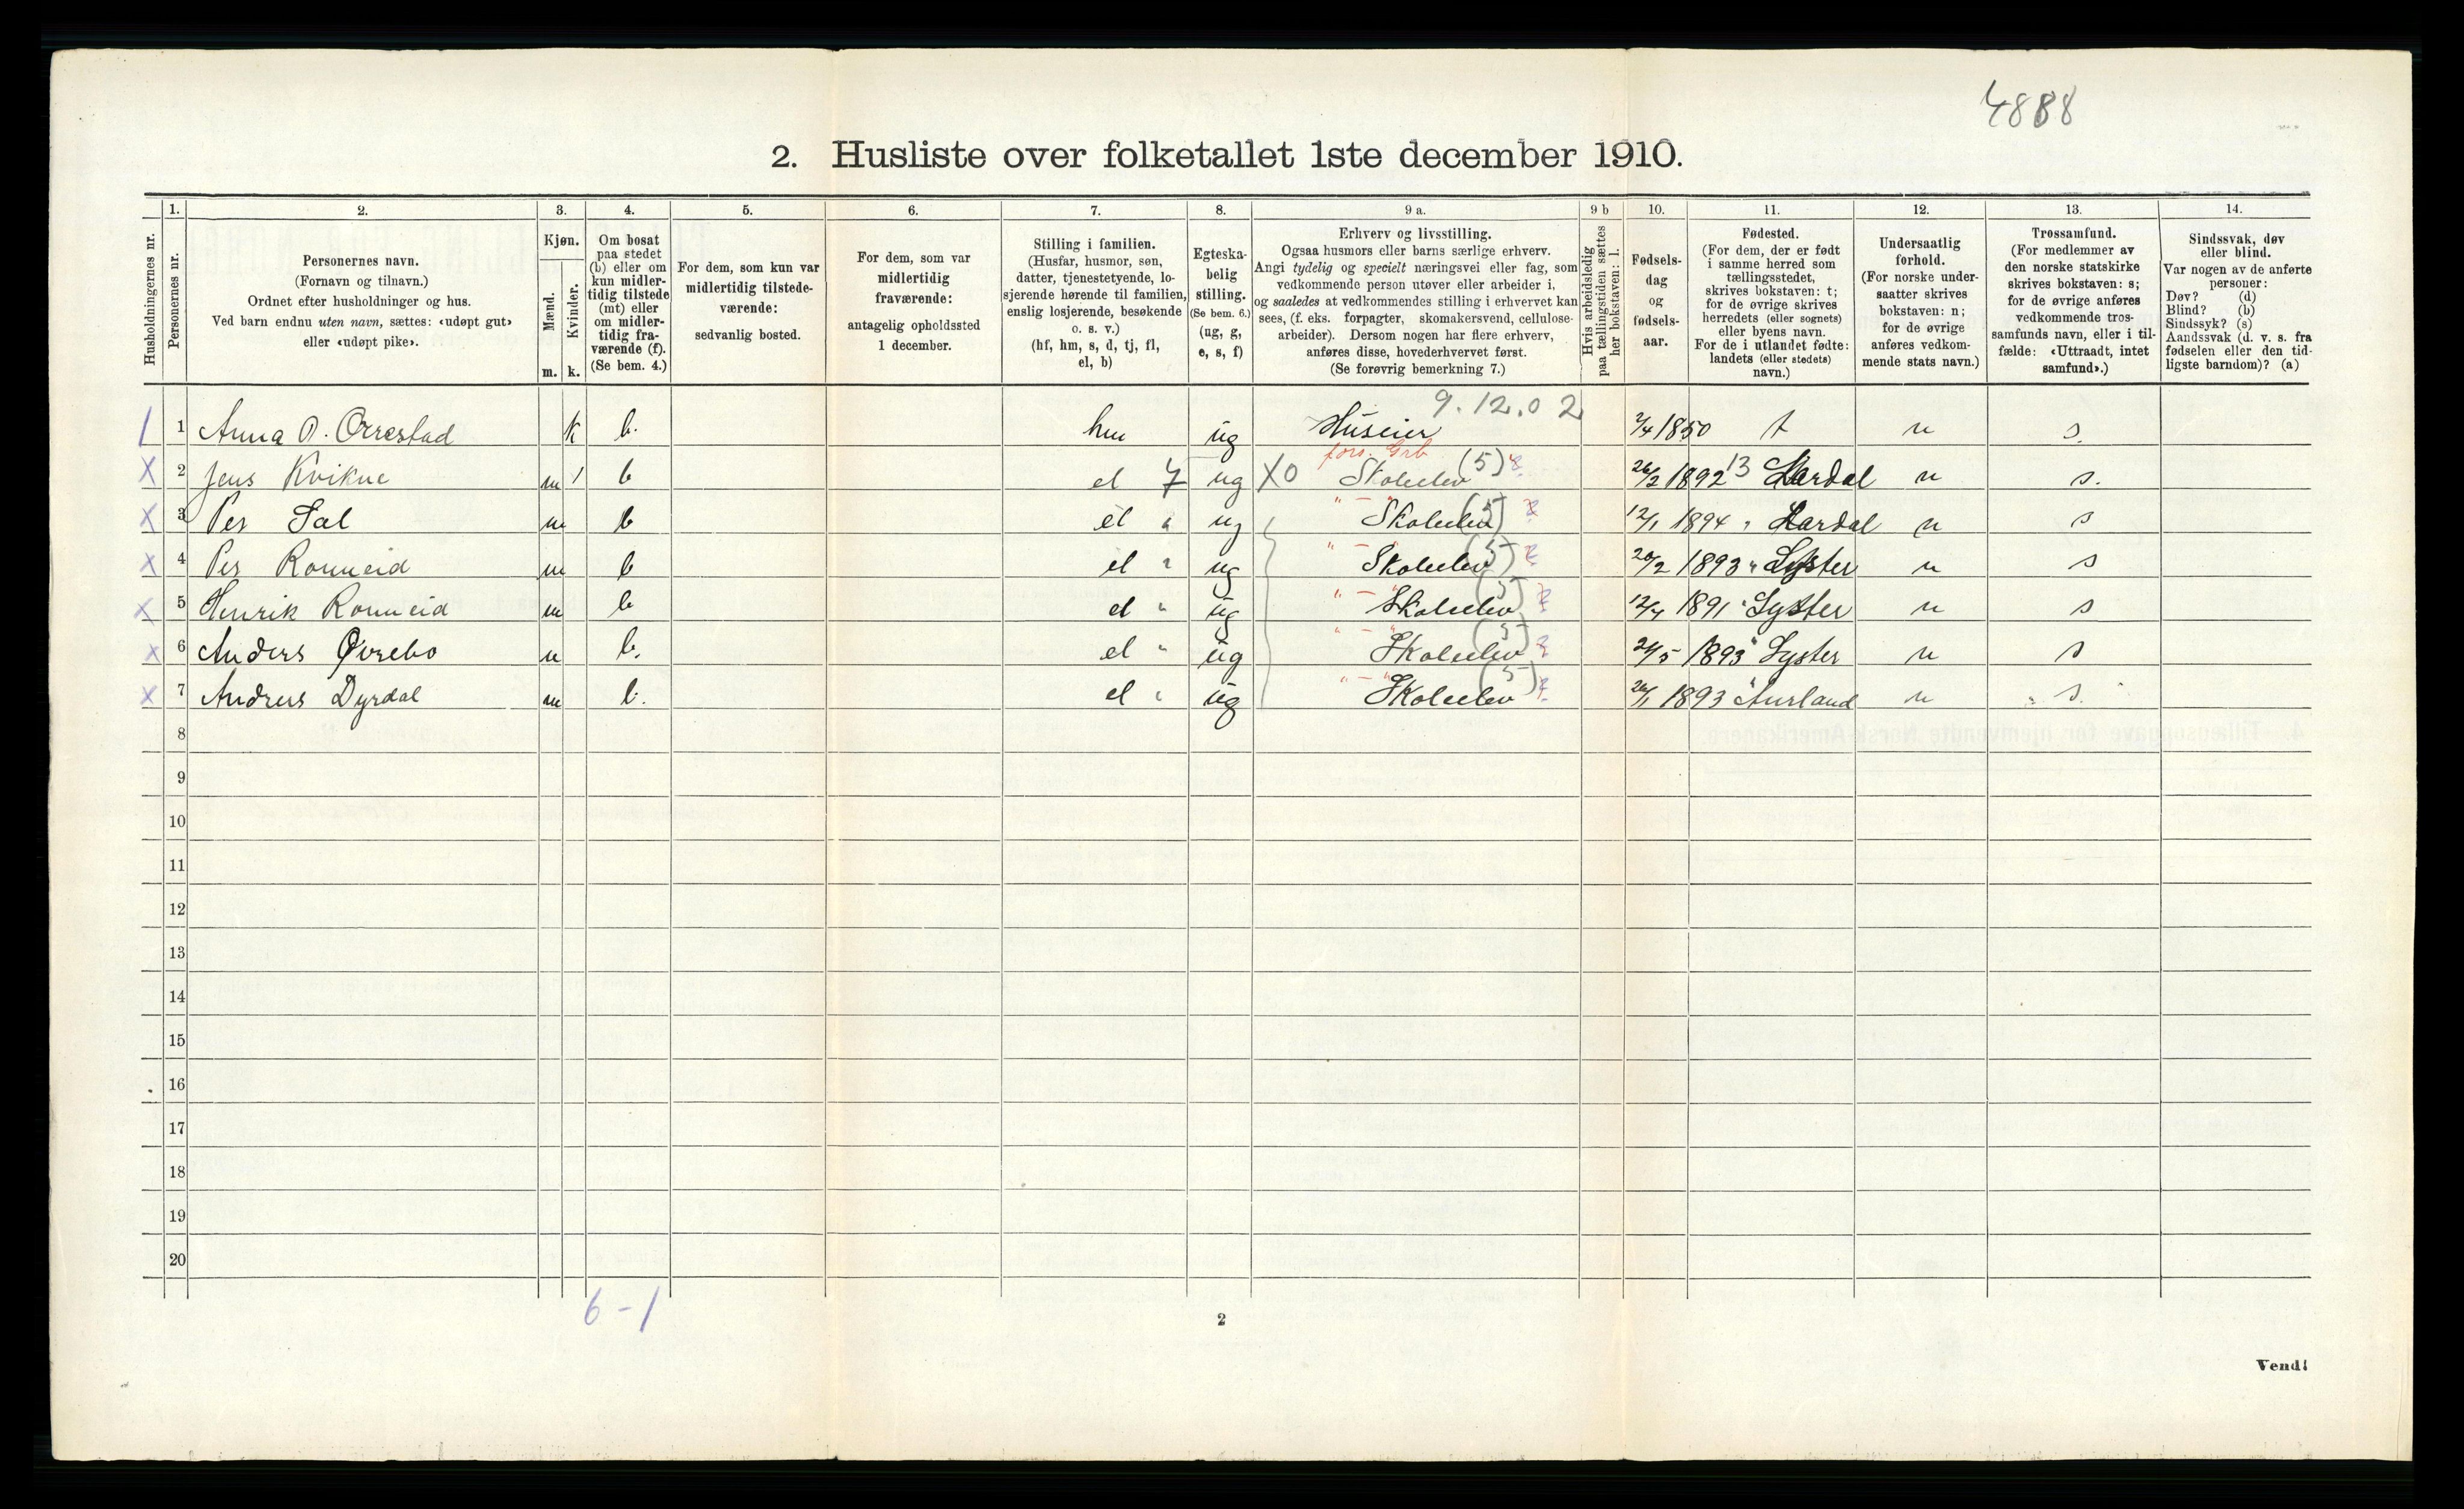 4888
2. Husliste over folketallet 1ste december 1910.
Husholdningernes nr.
1. Personernes nr.
2. Personernes navn.
(Fornavn og tilnavn.)
Ordnet efter husholdninger og hus.
Ved barn endnu uten navn, sættes: «udøpt gut»
eller «udøpt pike».
3. Kjøn.
Mænd. m.
Kvinder. k.
4. Om bosat
paa stedet
(b) eller om
kun midler-
tidig tilstede
(mt) eller
om midler-
tidig fra-
værende (f).
(Se bem. 4.)
5. For dem, som kun var
midlertidig tilstede-
værende:
sedvanlig bosted.
6. For dem, som var
midlertidig
fraværende:
antagelig opholdssted
1 december.
7. Stilling i familien.
(Husfar, husmor, søn,
datter, tjenestetyende, lo-
sjerende hørende til familien,
enslig losjerende, besøkende
o. s. v.)
(hf, hm, s, d, tj, fl,
el, b)
8. Egteska-
belig
stilling.
(Se bem. 6.)
(ug, g,
e, s, f)
9 a. Erhverv og livsstilling.
Ogsaa husmors eller barns særlige erhverv.
Angi tydelig og specielt næringsvei eller fag, som
vedkommende person utøver eller arbeider i,
og saaledes at vedkommendes stilling i erhvervet kan
sees, (f. eks. forpagter, skomakersvend, cellulose-
arbeider). Dersom nogen har flere erhverv,
anføres disse, hovederhvervet først.
(Se forøvrig bemerkning 7.)
9 b Hvis arbeidsledig
paa tællingstiden sættes
her bokstaven: l.
10. Fødsels-
dag
og
fødsels-
aar.
11. Fødested.
(For dem, der er født
i samme herred som
tællingsstedet,
skrives bokstaven: t;
for de øvrige skrives
herredets (eller sognets)
eller byens navn.
For de i utlandet fødte:
landets (eller stedets)
navn.)
12. Undersaatlig
forhold.
(For norske under-
saatter skrives
bokstaven: n;
for de øvrige
anføres vedkom-
mende stats navn.)
13. Trossamfund.
(For medlemmer av
den norske statskirke
skrives bokstaven: s;
for de øvrige anføres
vedkommende tros-
samfunds navn, eller i til-
fælde: «Uttraadt, intet
samfund».)
14. Sindssvak, døv
eller blind.
Var nogen av de anførte
personer:
Døv? (d)
Blind? (b)
Sindssyk? (s)
Aandssvak (d. v. s. fra
fødselen eller den tid-
ligste barndom)? (a)
9.12.02
1 1 Anna O. Orrestad k b. hm ug Huseier 2/4 1850 t n s.
fors. Grb
X 2 Jens Kvikne m b el 7 ug X0 Skoleelev (5) 26/2 1892 13 Lærdal n s.
X 3 Per Sal m b el " ug " — " Skoleelev (5) 12/1 1894 " Lærdal n s
X 4 Per Ronneid m b el " ug " — " Skoleelev (5) 20/2 1893 " Lyster n s
X 5 Henrik Ronneid m b el " ug " — " Skoleelev (5) 12/4 1891 " Lyster n s
X 6 Anders Øvrebo m b. el " ug " — " Skoleelev (5) 24/5 1893 " Lyster n s
X 7 Andreas Dyrdal m b. el " ug " — " Skoleelev (5) 26/1 1893 " Aurland n s.
8
9
10
11
12
13
14
15
16
17
18
19
20
6 - 1
2
Vend!